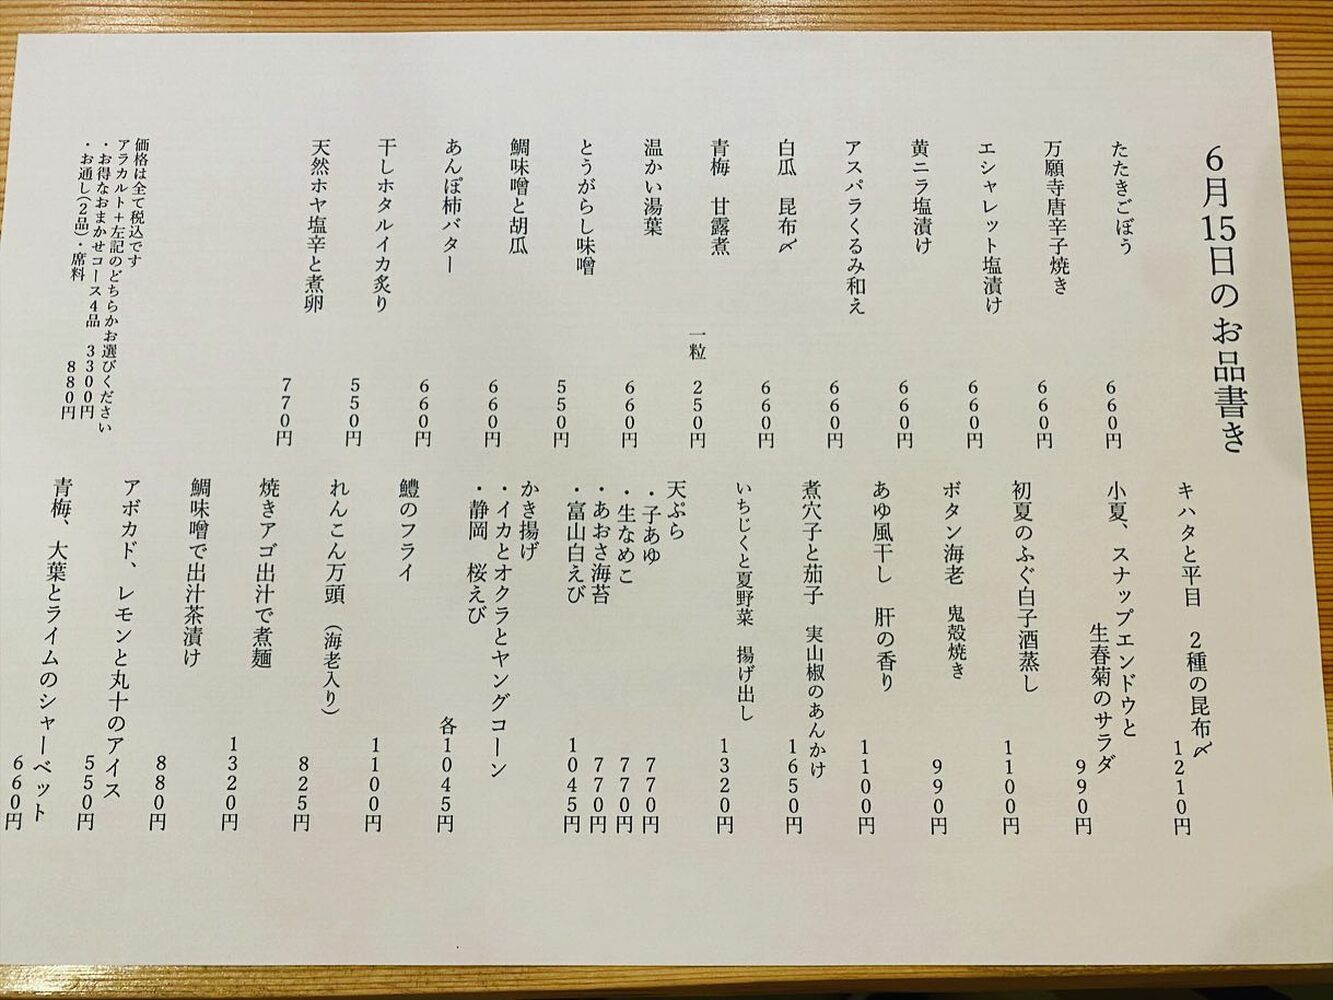 6月15日のお品書き
たたきごぼう 660円
万願寺唐辛子焼き 660円
エシャレット塩漬け 660円
黄ニラ塩漬け 660円
アスパラくるみ和え 660円
白瓜 昆布〆 660円
青梅 甘露煮 一粒 250円
温かい湯葉 660円
とうがらし味噌 550円
鯛味噌と胡瓜 660円
あんぽ柿バター 660円
干しホタルイカ炙り 550円
天然ホヤ塩辛と煮卵 770円
価格は全て税込です
アラカルト+左記のどちらかお選びください
・お得なおまかせコース4品 3300円
・お通し(2品)・席料 880円
キハタと平目 2種の昆布〆 1210円
小夏、スナップエンドウと
生春菊のサラダ 990円
初夏のふぐ白子酒蒸し 1100円
ボタン海老 鬼殻焼き 990円
あゆ風干し 肝の香り 1100円
煮穴子と茄子 実山椒のあんかけ 1650円
いちじくと夏野菜 揚げ出し 1320円
天ぷら
・子あゆ 770円
・生なめこ 770円
・あおさ海苔 770円
・富山白えび 1045円
かき揚げ
・イカとオクラとヤングコーン
・静岡 桜えび 各1045円
鱧のフライ 1100円
れんこん万頭(海老入り) 825円
焼きアゴ出汁で煮麺 1320円
鯛味噌で出汁茶漬け 880円
アボカド、レモンと丸十のアイス 550円
青梅、大葉とライムのシャーベット 660円